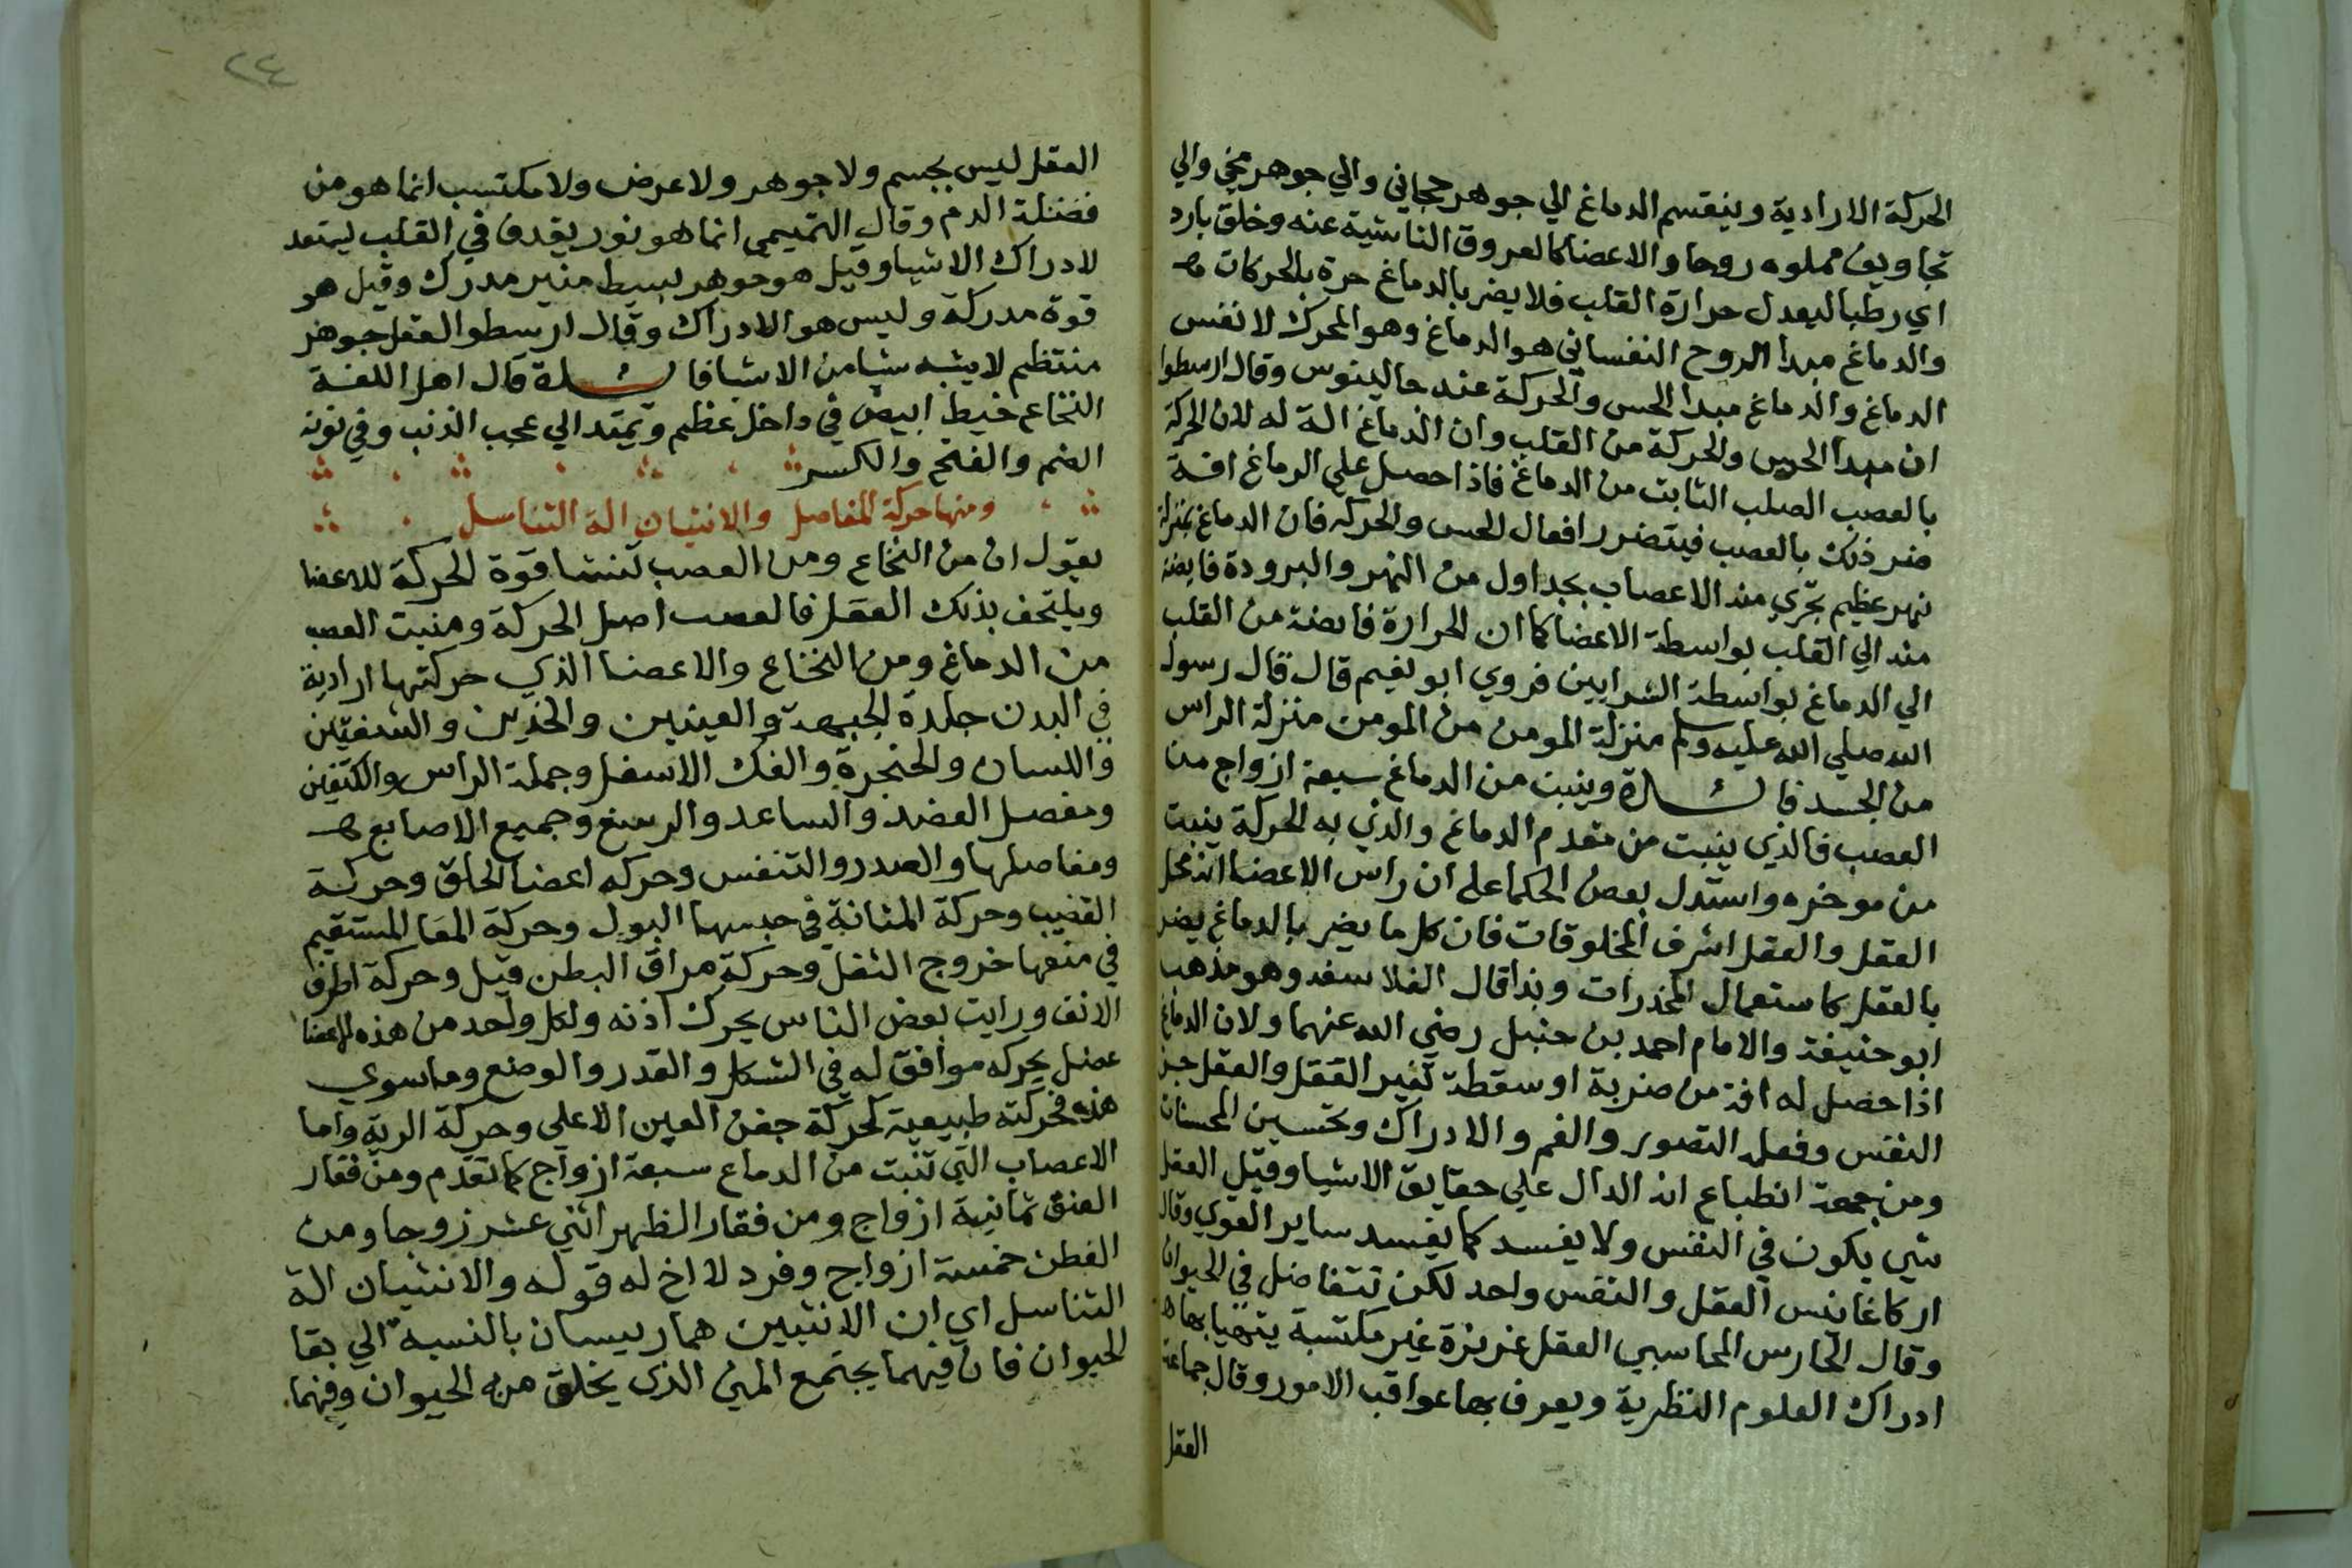 الحركة الارادية وينقسم الدماغ الي جوهر حجابي والي جوهر مخي والي
تجاويف مملوه روحا والاعضا كالعروق الناشية عنه وخلق بارد
اي رطبا ليعدل حرارة القلب فلا يضر بالدماغ حرة بالحركات
والدماغ مبدا الروح النفساني هو الدماغ وهو المحرك لا نفس
الدماغ والدماغ مبدا الحس والحركة عند جالينوس وقال ارسطوا
ان مبدا الحس والحركة من القلب وان الدماغ الة له لان الحركة
بالعصب الصلب النابت من الدماغ فاذا حصل علي الدماغ افة
ضر ذلك بالعصب فيتضرر افعال الحس والحركه فان الدماغ بمنزلة
نهر عظيم تجري منه الاعصاب بجداول من النهر والبرودة فايضة
منه الي القلب بواسطة الاعضا كما ان الحرارة فايضة من القلب
الي الدماغ بواسطة الشرايين فروي ابو نعيم قال قال رسول
الله صلي الله عليه وسلم منزلة المومن من المومن منزلة الراس
من الجسد فايدة وينبت من الدماغ سبعة ازواج من
العصب فالذي ينبت من مقدم الدماغ والذي به الحركة ينبت
من موخره واستدل بعض الحكما علي ان راس الاعضا انه محل
العقل والعقل اشرف المخلوقات فان كل ما يضر بالدماغ يضر
بالعقل كاستعمال المخدرات وبذا قال الفلاسفه وهو مذهب
ابو حنيفة والامام احمد بن حنبل رضي الله عنهما ولان الدماغ
اذا حصل له افة من ضربة او سقطة تغير العقل والعقل جز
النفس وفعله التصور والفهم والادراك وتحسين المحسنات
ومن جهة انطباع انه الدال علي حقايق الاشيا وقيل العقل
شي يكون في النفس ولا يفسد كما يفسد ساير القوي وقال
اركاغانس العقل والنفس واحد لكن تتفاضل في الحيوان
وقال الحارس المحاسبي العقل غريزة غير مكتسبة يتهيا بها
ادراك العلوم النظرية ويعرف بها عواقب الامور وقال جماعة
العقل
٢٤
العقل ليس بجسم ولا جوهر ولا عرض ولا مكتسب انما هو من
فضلة الدم وقال التميمي انما هو نور يقدف في القلب ليستعد
لادراك الاشيا وقيل هو جوهر بسيط منير مدرك وقيل هو
قوة مدركة وليس هو الادراك وقال ارسطو العقل جوهر
منتظم لا يشبه شيا من الاشيا فايدة قال اهل اللغة
النخاع خيط ابيض في داخل عظم ويمتد الي عجب الذنب وفي نونه
الضم والفتح والكسر
ومنها حركة المفاصل والانثيان الة التناسل
يقول ان من النخاع ومن العصب تنشا قوة الحركة للاعضا
ويلتحف بذلك العضل فالعصب اصل الحركة ومنبت العصب
من الدماغ ومن النخاع والاعضا الذي حركتها ارادية
في البدن جلدة الجبهة والعينين والخدين والشفتين
واللسان والحنجرة والفك الاسفل وجملة الراس والكتفين
ومفصل العضد والساعد والرسغ وجميع الاصابع
ومفاصلها والصدر والتنفس وحركه اعضا الحلق وحركة
القضيب وحركة المثانة في حبسها البول وحركة المعا المستقيم
في منعها خروج الثفل وحركة مراق البطن قيل وحركة اطراف
الانف ورايت بعض الناس يحرك اذنه ولكل واحد من هذه الاعضا
عضل يحركه موافق له في الشكل والقدر والوضع وما سوي
هذه فحركته طبيعية كحركة جفن العين الاعلي وحركة الرية واما
الاعصاب التي تنبت من الدماغ سبعة ازواج كما تقدم ومن فقار
العنق ثمانية ازواج ومن فقار الظهر اثني عشر زوجا ومن
القطن خمسة ازواج وفرد لا اخ له قوله والانثيان الة
التناسل اي ان الانثيين هما رييسان بالنسبة الي بقا
الحيوان فان فيهما يجتمع المني الذي يخلق منه الحيوان وفيهما